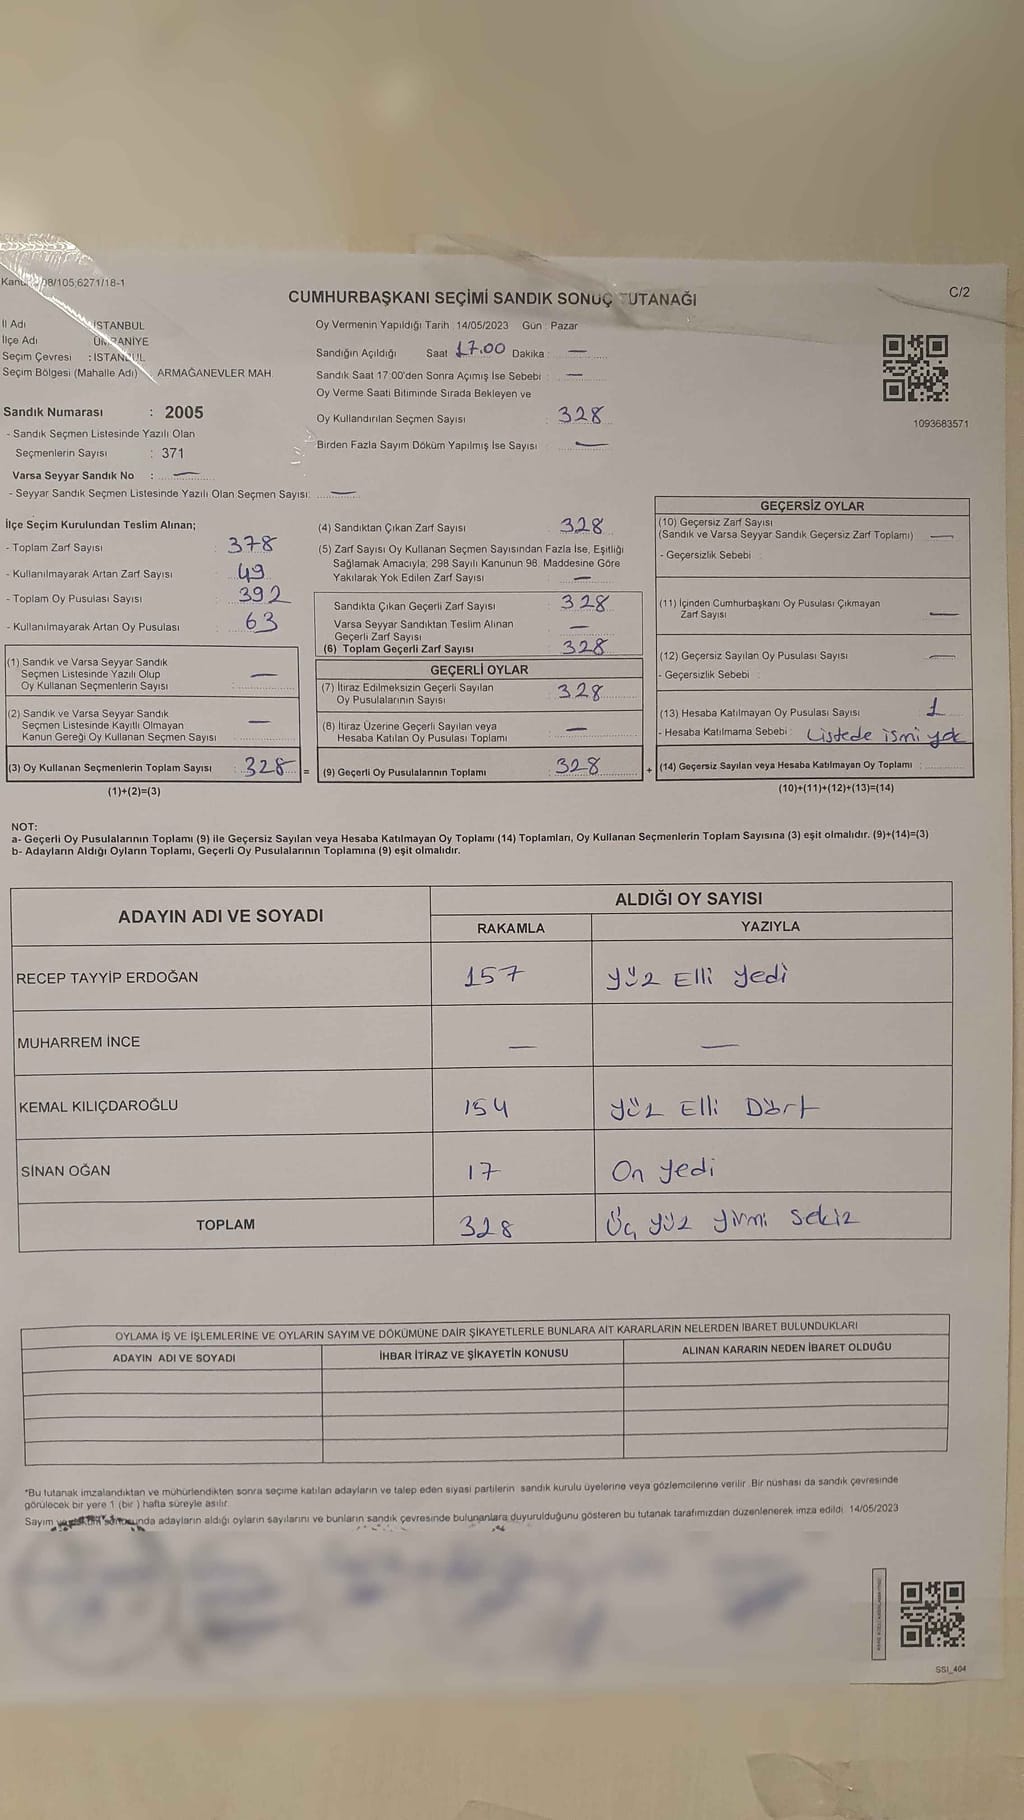 98/105;6271/18-1
C/2
CUMHURBAŞKANI SEÇİMİ SANDIK SONUÇ TUTANAĞI
İl Adı İSTANBUL
İlçe Adı ÜMRANİYE
Seçim Çevresi : İSTANBUL
Seçim Bölgesi (Mahalle Adı) ARMAĞANEVLER MAH.
Sandık Numarası : 2005
- Sandık Seçmen Listesinde Yazılı Olan
Seçmenlerin Sayısı : 371
Varsa Seyyar Sandık No : —
- Seyyar Sandık Seçmen Listesinde Yazılı Olan Seçmen Sayısı: —
Oy Vermenin Yapıldığı Tarih : 14/05/2023 Gün : Pazar
Sandığın Açıldığı Saat 17.00 Dakika : —
Sandık Saat 17:00'den Sonra Açımış İse Sebebi : —
Oy Verme Saati Bitiminde Sırada Bekleyen ve
Oy Kullandırılan Seçmen Sayısı : 328
Birden Fazla Sayım Döküm Yapılmış İse Sayısı : —
1093683571
İlçe Seçim Kurulundan Teslim Alınan;
- Toplam Zarf Sayısı : 378
- Kullanılmayarak Artan Zarf Sayısı : 49
- Toplam Oy Pusulası Sayısı : 392
- Kullanılmayarak Artan Oy Pusulası : 63
(1) Sandık ve Varsa Seyyar Sandık
Seçmen Listesinde Yazılı Olup
Oy Kullanan Seçmenlerin Sayısı : —
(2) Sandık ve Varsa Seyyar Sandık
Seçmen Listesinde Kayıtlı Olmayan
Kanun Gereği Oy Kullanan Seçmen Sayısı : —
(3) Oy Kullanan Seçmenlerin Toplam Sayısı : 328 =
(1)+(2)=(3)
(4) Sandıktan Çıkan Zarf Sayısı : 328
(5) Zarf Sayısı Oy Kullanan Seçmen Sayısından Fazla İse, Eşitliği
Sağlamak Amacıyla; 298 Sayılı Kanunun 98. Maddesine Göre
Yakılarak Yok Edilen Zarf Sayısı : —
Sandıkta Çıkan Geçerli Zarf Sayısı : 328
Varsa Seyyar Sandıktan Teslim Alınan
Geçerli Zarf Sayısı : —
(6) Toplam Geçerli Zarf Sayısı : 328
GEÇERLİ OYLAR
(7) İtiraz Edilmeksizin Geçerli Sayılan
Oy Pusulalarının Sayısı : 328
(8) İtiraz Üzerine Geçerli Sayılan veya
Hesaba Katılan Oy Pusulası Toplamı : —
(9) Geçerli Oy Pusulalarının Toplamı : 328 +
GEÇERSİZ OYLAR
(10) Geçersiz Zarf Sayısı
(Sandık ve Varsa Seyyar Sandık Geçersiz Zarf Toplamı) : —
- Geçersizlik Sebebi :
(11) İçinden Cumhurbaşkanı Oy Pusulası Çıkmayan
Zarf Sayısı : —
(12) Geçersiz Sayılan Oy Pusulası Sayısı : —
- Geçersizlik Sebebi :
(13) Hesaba Katılmayan Oy Pusulası Sayısı : 1
- Hesaba Katılmama Sebebi : Listede ismi yok
(14) Geçersiz Sayılan veya Hesaba Katılmayan Oy Toplamı :
(10)+(11)+(12)+(13)=(14)
NOT:
a- Geçerli Oy Pusulalarının Toplamı (9) ile Geçersiz Sayılan veya Hesaba Katılmayan Oy Toplamı (14) Toplamları, Oy Kullanan Seçmenlerin Toplam Sayısına (3) eşit olmalıdır. (9)+(14)=(3)
b- Adayların Aldığı Oyların Toplamı, Geçerli Oy Pusulalarının Toplamına (9) eşit olmalıdır.
ADAYIN ADI VE SOYADI
ALDIĞI OY SAYISI
RAKAMLA YAZIYLA
RECEP TAYYİP ERDOĞAN 157 Yüz Elli Yedi
MUHARREM İNCE — —
KEMAL KILIÇDAROĞLU 154 Yüz Elli Dört
SİNAN OĞAN 17 On Yedi
TOPLAM 328 Üç Yüz Yirmi Sekiz
OYLAMA İŞ VE İŞLEMLERİNE VE OYLARIN SAYIM VE DÖKÜMÜNE DAİR ŞİKAYETLERLE BUNLARA AİT KARARLARIN NELERDEN İBARET BULUNDUKLARI
ADAYIN ADI VE SOYADI İHBAR İTİRAZ VE ŞİKAYETİN KONUSU ALINAN KARARIN NEDEN İBARET OLDUĞU
*Bu tutanak imzalandıktan ve mühürlendikten sonra seçime katılan adayların ve talep eden siyasi partilerin sandık kurulu üyelerine veya gözlemcilerine verilir. Bir nüshası da sandık çevresinde
görülecek bir yere 1 (bir) hafta süreyle asılır.
Sayım adayların aldığı oyların sayılarını ve bunların sandık çevresinde bulunanlara duyurulduğunu gösteren bu tutanak tarafımızdan düzenlenerek imza edildi. 14/05/2023
SSI_404